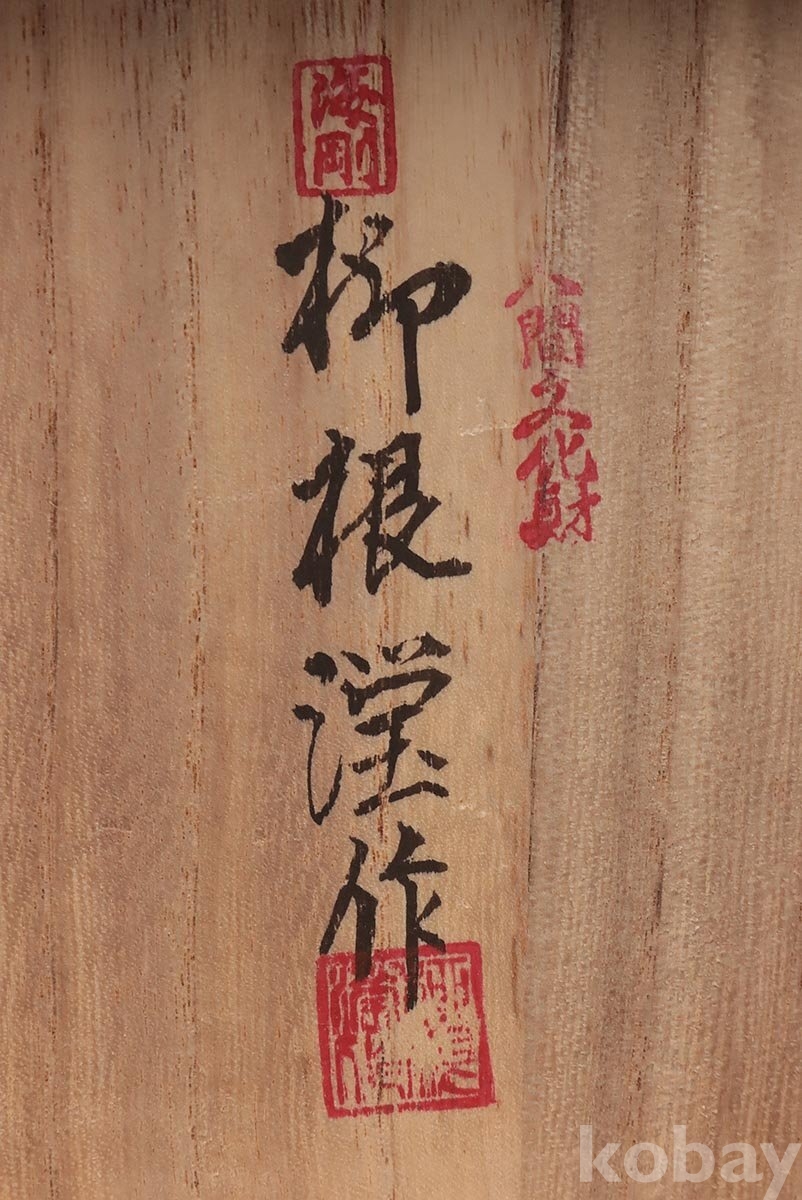 海剛
柳根瀅作
人間文化財
kobay